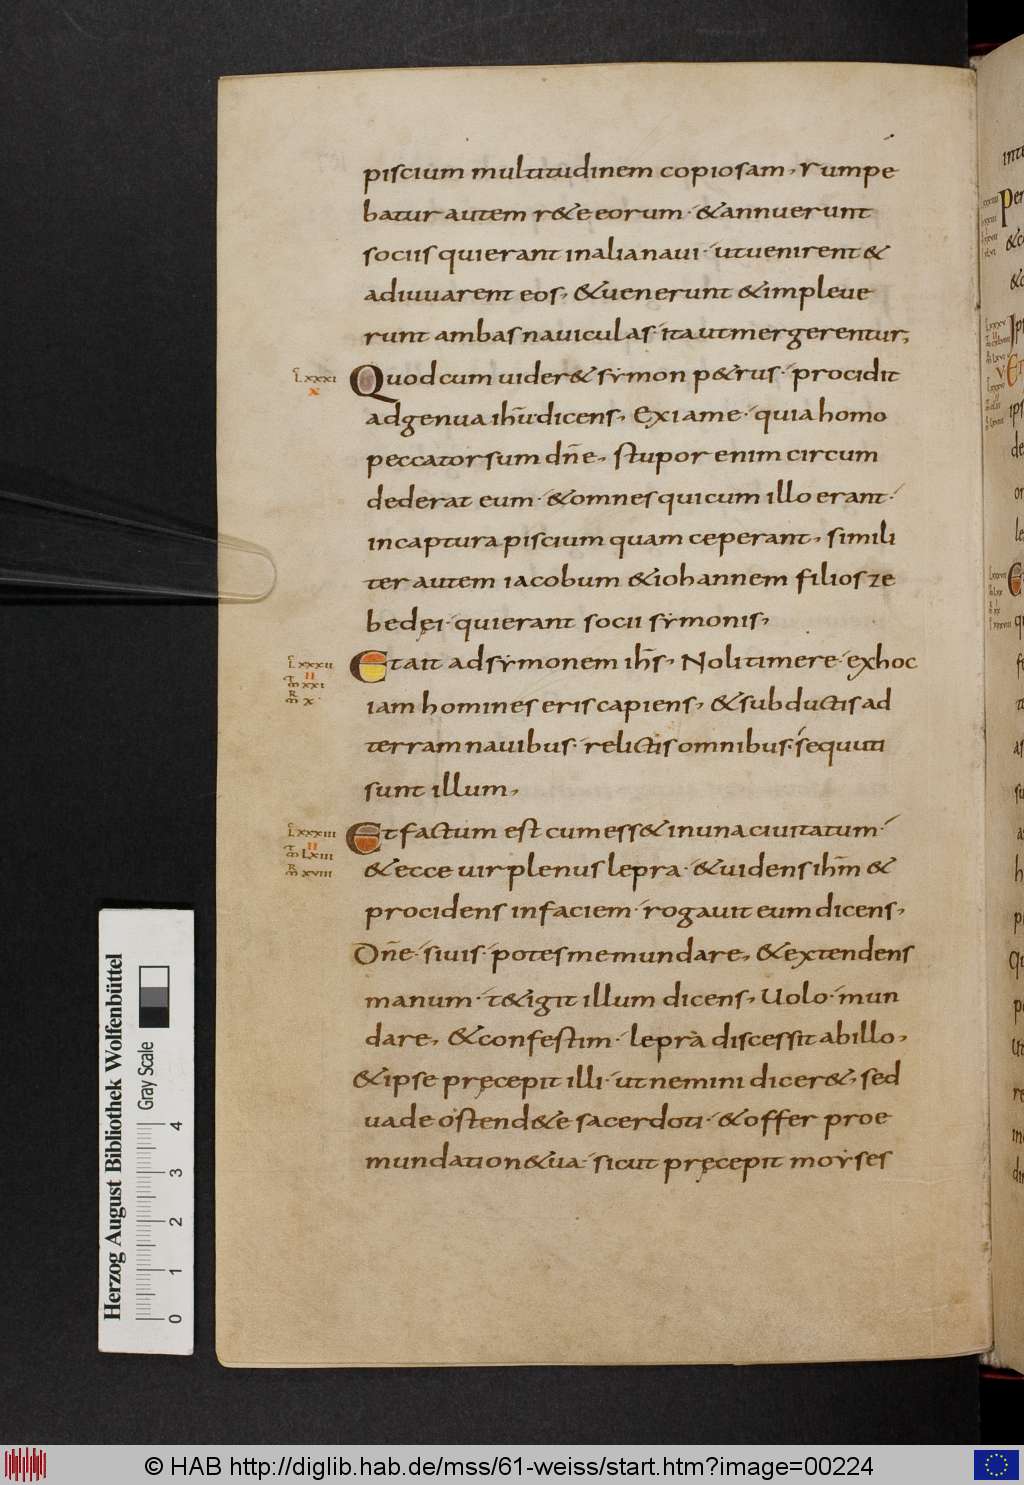 piscium multitudinem copiosam, rumpe
batur autem r&e eorum· &annuerunt
sociis quierant inalianaui· utuenirent &
adiuuarent eos, &uenerunt &impleue
runt ambas nauiculas· itautmergerentur,
L LXXXI
X
Quodcum uider& symon p&rus· procidit
adgenua ihū dicens, Exiame· quia homo
peccator sum dn̄e, stupor enim circum
dederat eum· &omnes quicum illo erant·
incaptura piscium quam ceperant, simili
ter autem iacobum &iohannem filios ze
bedęi· quierant socii symonis,
L LXXXII
II
m̄ XXI
m̄ X
Etait adsymonem ihs̄, Noli timere· exhoc
iam homines eris capiens, &subductis ad
terram nauibus· relictis omnibus· sequuti
sunt illum,
L LXXXIII
II
m̄ LXIII
m̄ XVIII
Et factum est cum ess& inuna ciuitatum·
&ecce uir plenus lepra· &uidens ihm̄ &
procidens infaciem· rogauit eum dicens,
Dn̄e· siuis· potes me mundare, &extendens
manum· t&igit illum dicens, Uolo· mun
dare, &confestim· lepra discessit abillo,
&ipse pręcepit illi· ut nemini dicer&, sed
uade ostend&e sacerdoti· &offer proe
mundation&ua· sicut pręcepit moyses
Herzog August Bibliothek Wolfenbüttel
Gray Scale
0 1 2 3 4
© HAB http://diglib.hab.de/mss/61-weiss/start.htm?image=00224